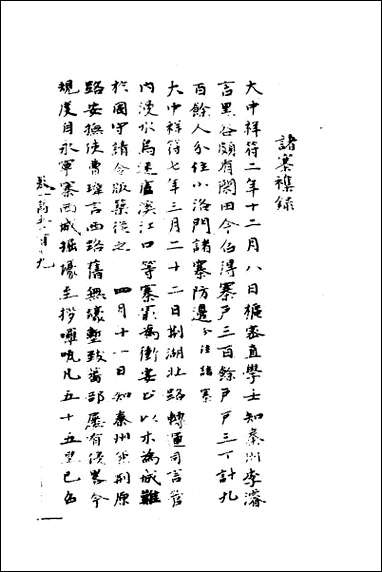 諸寨雜錄
大中祥符二年十二月八日樞密直學士知秦州李濬
言黑谷頗有閑田今伯得寨戶三百餘戶戶三丁計九
百餘人分住小洛門諸寨防邊分注諸寨
大中祥符七年三月二十二日荆湖北路轉運司言管
內溇水為連盧溪江口等寨最為衝要止以木為城難
於固守請令版築從之　四月十一日知秦州兼
路安撫使曹瑋言西路舊無壕塹致蕃部屢有侵畧今
規度自永寧寨西城掘壕至拶囉咓凡五十五里已